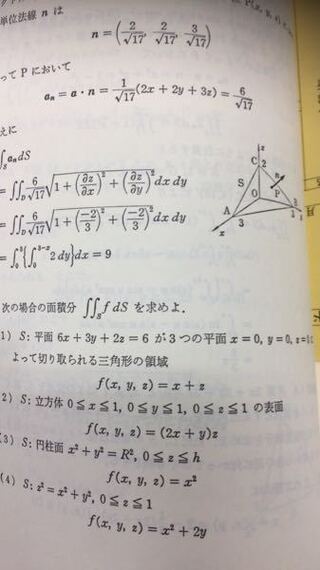 単位法線 n は
n = (2/√17, 2/√17, 3/√17)
って P において
aₙ = a · n = 1/√17 (2x + 2y + 3z) = 6/√17
えに
∫ₛ aₙdS
= ∬_D 6/√17 √(1 + (∂z/∂x)² + (∂z/∂y)²) dx dy
= ∬_D 6/√17 √(1 + (-2/3)² + (-2/3)²) dx dy
= ∫₀³{∫₀³⁻ˣ 2 dy}dx = 9
z
C 2
S n
O P
A 3
3
x
次の場合の面積分 ∬ₛ f dS を求めよ.
1) S: 平面 6x + 3y + 2z = 6 が 3 つの平面 x = 0, y = 0, z =
よって切り取られる三角形の領域
f(x, y, z) = x + z
2) S: 立方体 0 ≦ x ≦ 1, 0 ≦ y ≦ 1, 0 ≦ z ≦ 1 の表面
f(x, y, z) = (2x + y)z
(3) S: 円柱面 x² + y² = R², 0 ≦ z ≦ h
f(x, y, z) = x²
(4) S: z² = x² + y², 0 ≦ z ≦ 1
f(x, y, z) = x² + 2y